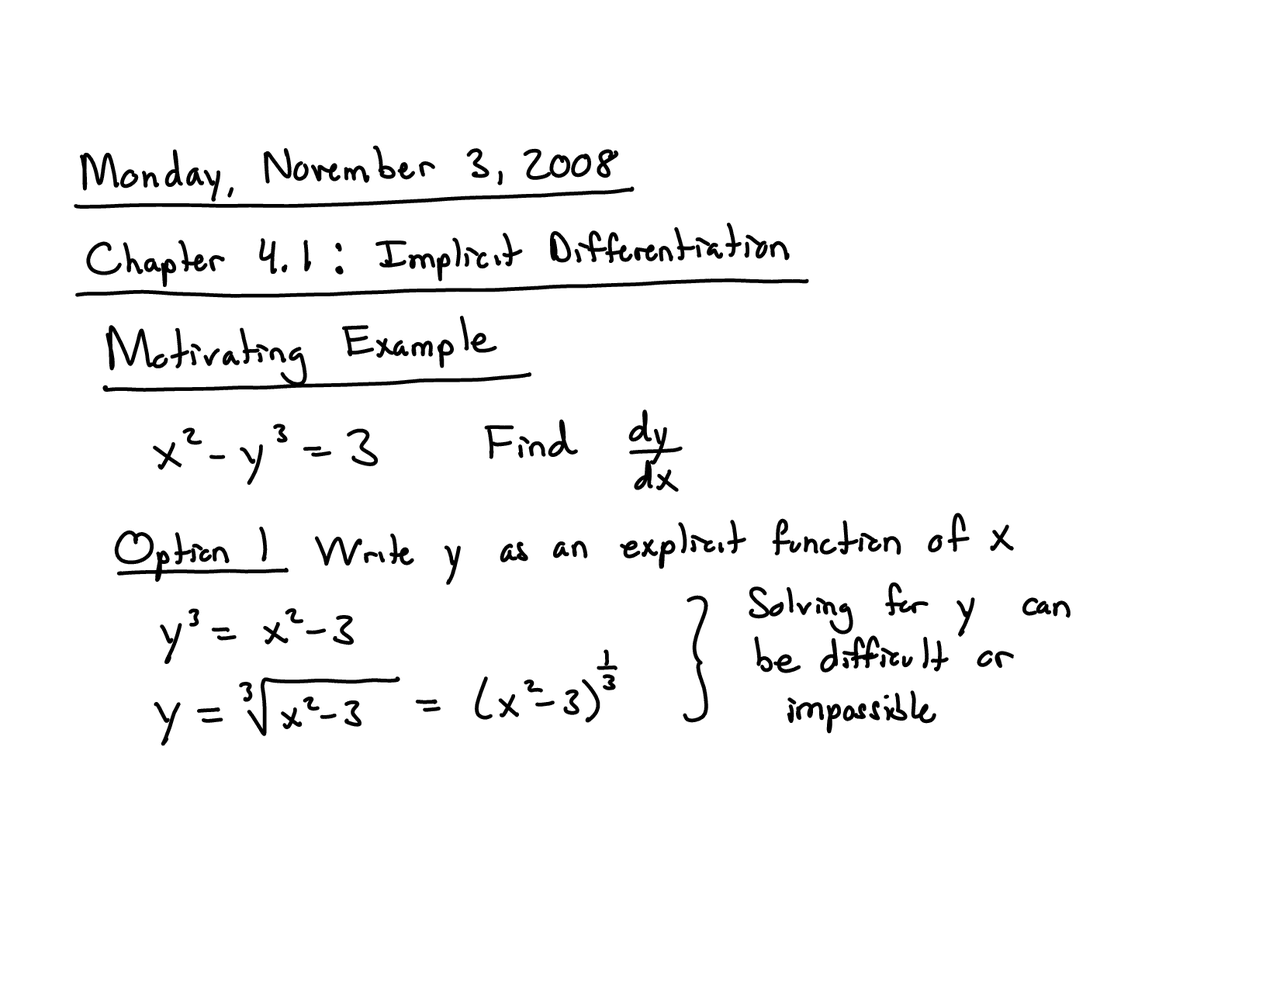 Monday, November 3, 2008
Chapter 4.1: Implicit Differentiation
Motivating Example
x² - y³ = 3 Find dy/dx
Option 1 Write y as an explicit function of x
y³ = x² - 3
y = ∛(x² - 3) = (x² - 3)^(1/3)
} Solving for y can
be difficult or
impossible